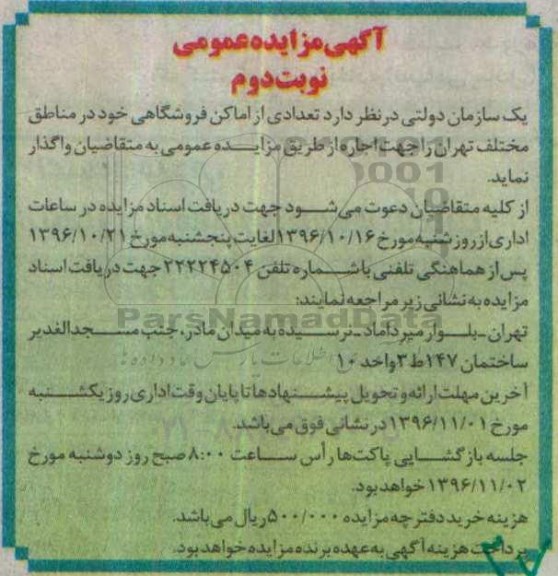 آگهی مزایده عمومی
نوبت دوم
یک سازمان دولتی در نظر دارد تعدادی از اماکن فروشگاهی خود در مناطق
مختلف تهران را جهت اجاره از طریق مزایده عمومی به متقاضیان واگذار
نماید.
از کلیه متقاضیان دعوت می‌شود جهت دریافت اسناد مزایده در ساعات
اداری از روز شنبه مورخ ۱۳۹۶/۱۰/۱۶ لغایت پنجشنبه مورخ ۱۳۹۶/۱۰/۲۱
پس از هماهنگی تلفنی با شماره تلفن ۲۲۲۲۴۵۰۴ جهت دریافت اسناد
مزایده به نشانی زیر مراجعه نمایند:
ParsNamadData
تهران ـ بلوار میرداماد ـ نرسیده به میدان مادر، جنب مسجدالغدیر
ساختمان ۱۴۷ ط ۳ واحد ۱۰
آخرین مهلت ارائه و تحویل پیشنهادها تا پایان وقت اداری روز یکشنبه
مورخ ۱۳۹۶/۱۱/۰۱ در نشانی فوق می‌باشد.
جلسه بازگشایی پاکت‌ها رأس ساعت ۸:۰۰ صبح روز دوشنبه مورخ
۱۳۹۶/۱۱/۰۲ خواهد بود.
هزینه خرید دفترچه مزایده ۵۰۰/۰۰۰ ریال می‌باشد.
پرداخت هزینه آگهی به عهده برنده مزایده خواهد بود.